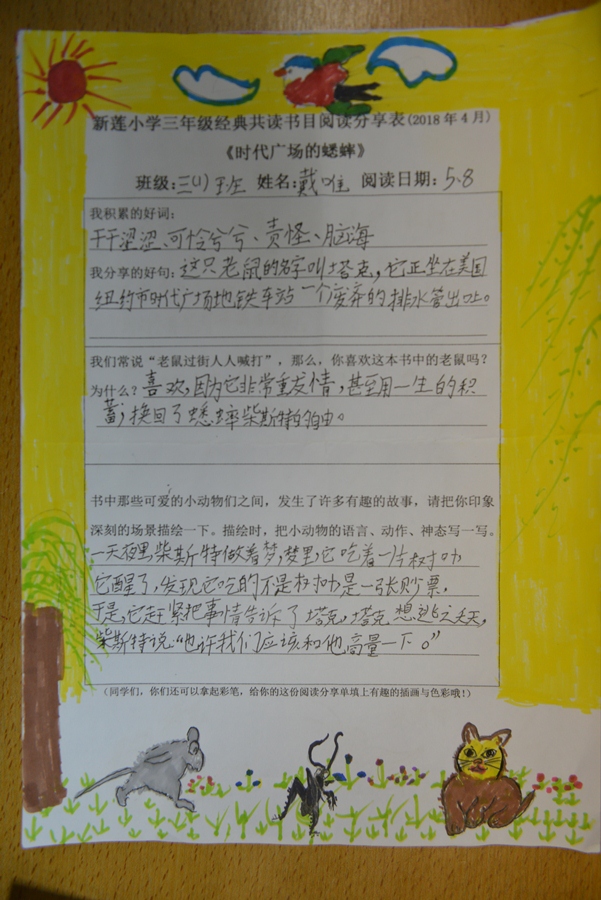 新莲小学三年级经典共读书目阅读分享表(2018年4月)
《时代广场的蟋蟀》
班级:三(1)班 姓名:戴唯 阅读日期:5.8
我积累的好词:
干干涩涩、可怜兮兮、责怪、脑海
我分享的好句:这只老鼠的名字叫塔克,它正坐在美国
纽约市时代广场地铁车站一个废弃的排水管出口。
我们常说“老鼠过街人人喊打”,那么,你喜欢这本书中的老鼠吗?
为什么?喜欢,因为它非常重友情,甚至用一生的积
蓄,换回了蟋蟀柴斯特的自由。
书中那些可爱的小动物们之间,发生了许多有趣的故事,请把你印象
深刻的场景描绘一下。描绘时,把小动物的语言、动作、神态写一写。
一天夜里,柴斯特做着梦,梦里,它吃着一片树叶
它醒了,发现它吃的不是树叶是一张钞票,
于是,它赶紧把事情告诉了塔克,塔克想逃之夭夭,
柴斯特说:“也许我们应该和他商量一下。”
(同学们,你们还可以拿起彩笔,给你的这份阅读分享单填上有趣的插画与色彩哦!)